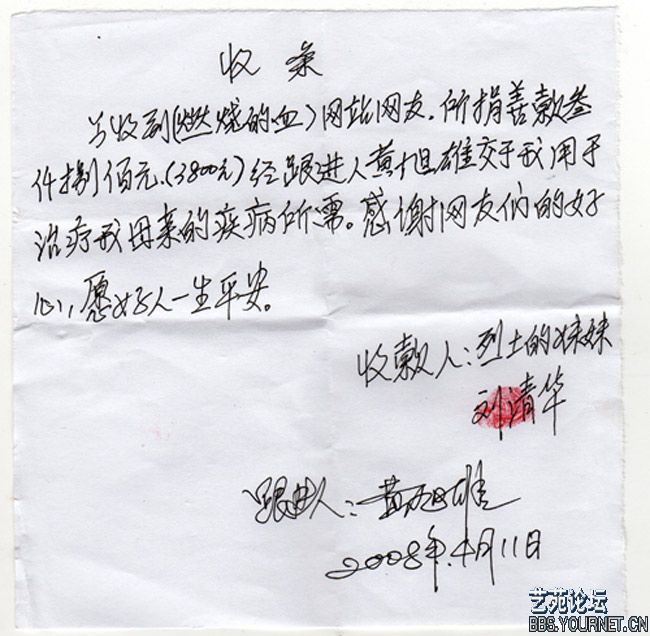 收条
兹收到(燃烧的血)网站网友.所捐善款叁
仟捌佰元.(3800元)经跟进人黄旭雄交于我用于
治疗我母亲的疾病所需。感谢网友们的好
心,愿好人一生平安。
收款人:烈士的妹妹
刘清华
跟进人:黄旭雄
2008年.4月11日
艺苑论坛
BBS.YOURNET.CN